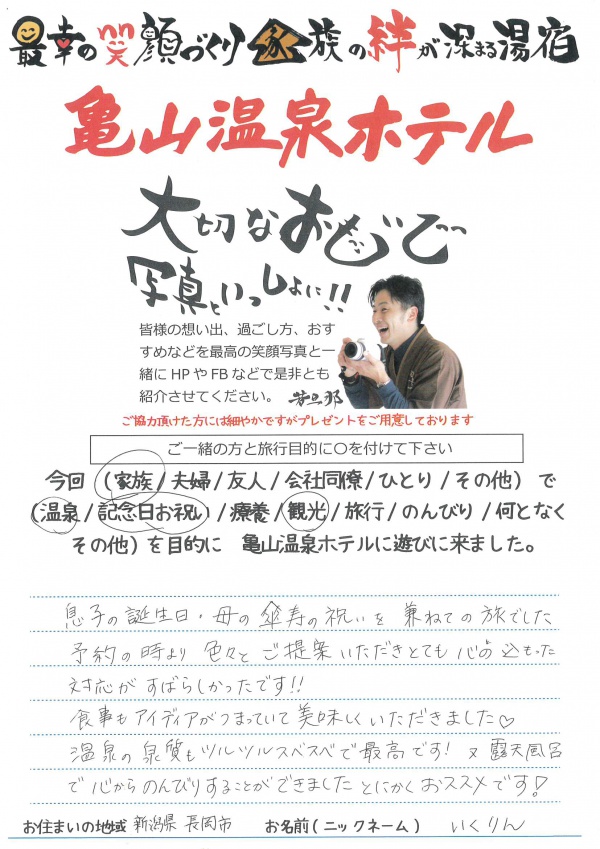 最幸の笑顔づくり 家族の絆が深まる湯宿
亀山温泉ホテル
大切なおもいで
写真といっしょに!!
皆様の想い出、過ごし方、おす
すめなどを最高の笑顔写真と一
緒にHPやFBなどで是非とも
紹介させてください。 若旦那
ご協力頂けた方には細やかですがプレゼントをご用意しております
ご一緒の方と旅行目的に○を付けて下さい
今回 (家族/夫婦/友人/会社同僚/ひとり/その他) で
(温泉/記念日お祝い/療養/観光/旅行/のんびり/何となく
その他)を目的に 亀山温泉ホテルに遊びに来ました。
息子の誕生日・母の傘寿の祝いを 兼ねての旅でした
予約の時より 色々と ご提案いただきとても 心の込もった
対応が すばらしかったです!!
食事も アイディアがつまっていて 美味しくいただきました♡
温泉の泉質もツルツルスベスベで最高です! 又 露天風呂
で心からのんびりすることができました とにかくおススメです!
お住まいの地域 新潟県 長岡市 お名前(ニックネーム) いくりん